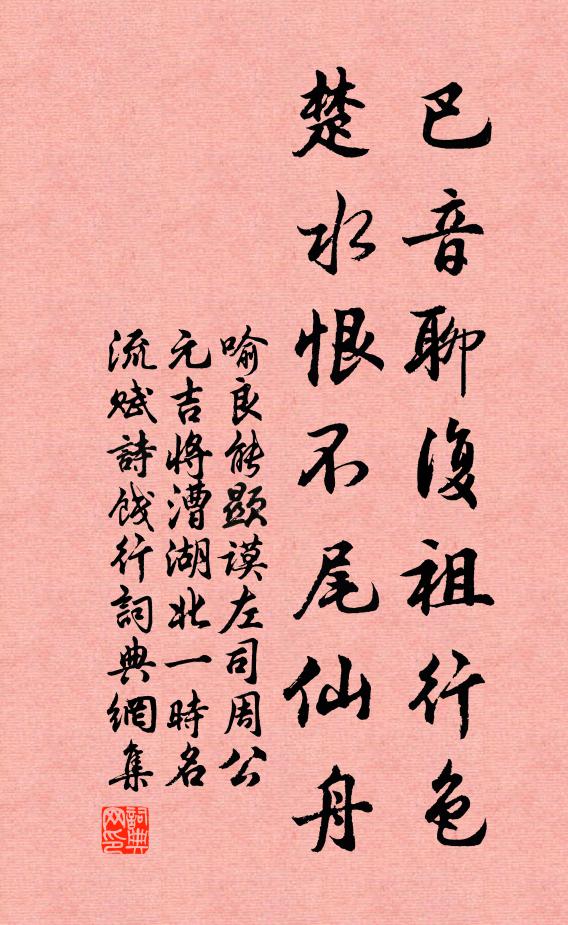 巴音聊復祖行色
楚水恨不尾仙舟
喻良能顯謨左司周公
元吉將漕湖北一時名
流賦詩餞行詞典網集
詞典
网印